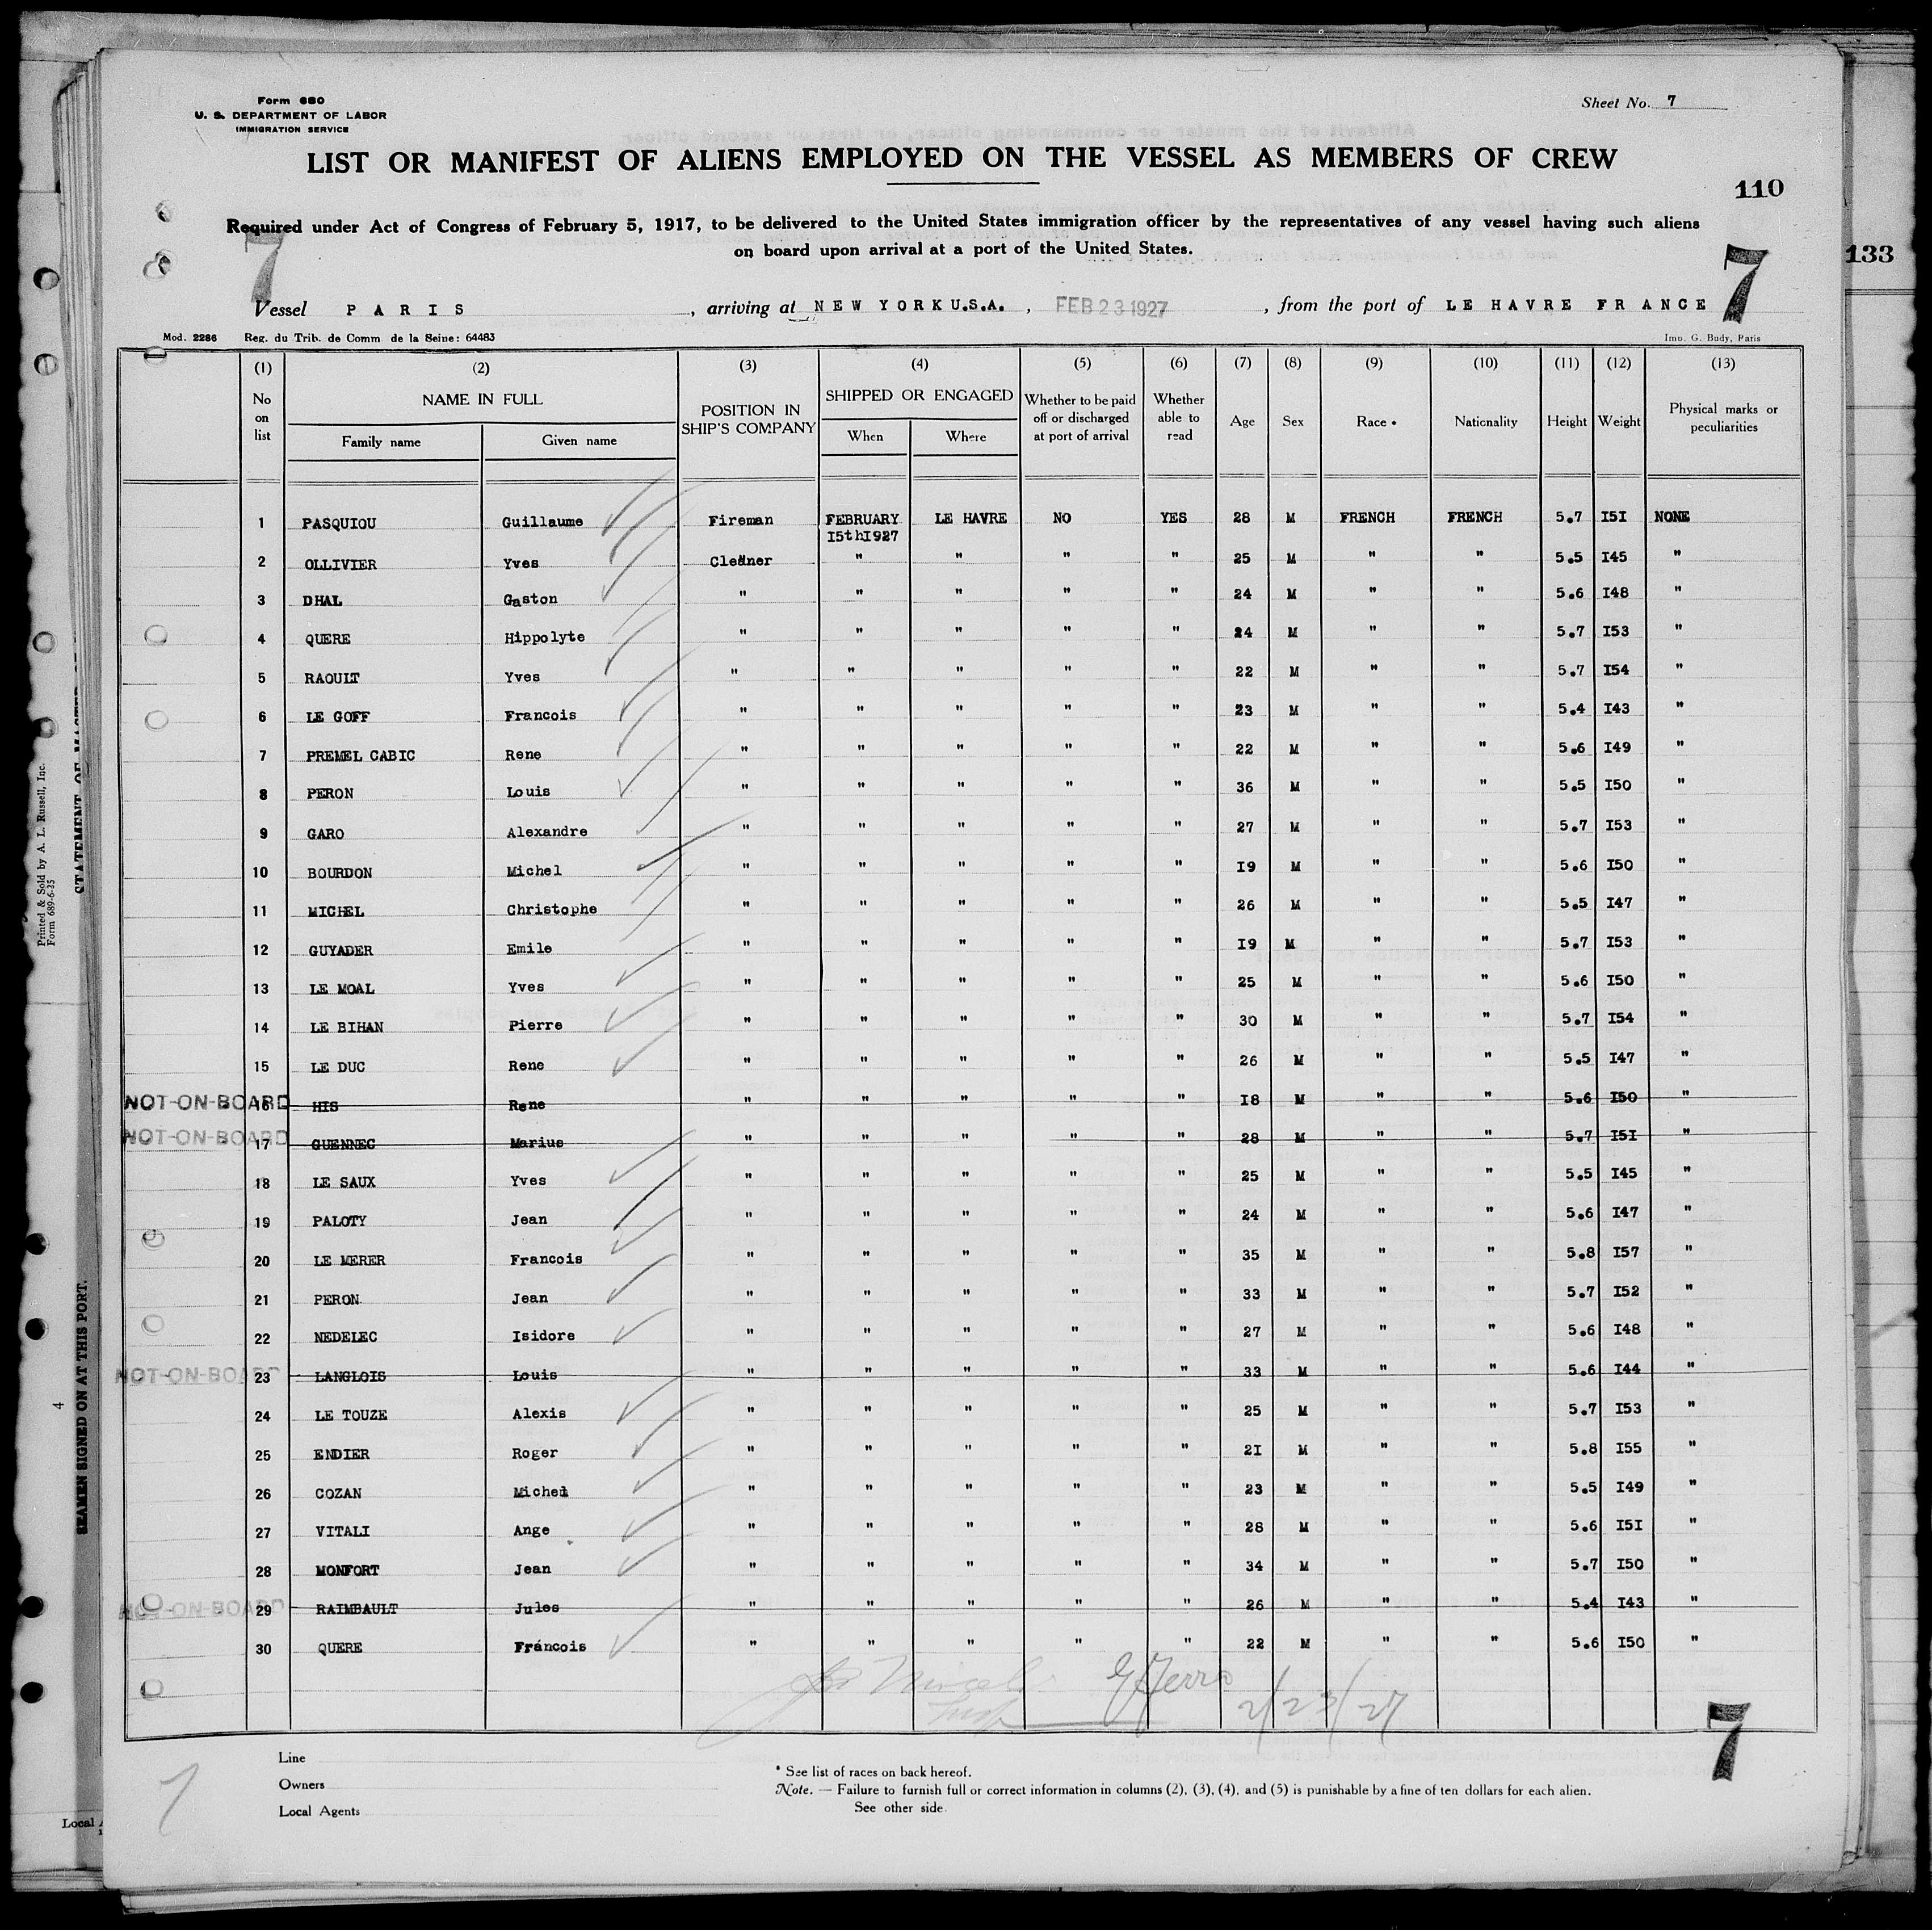 Form 680
U. S. DEPARTMENT OF LABOR
IMMIGRATION SERVICE
Sheet No. 7
LIST OR MANIFEST OF ALIENS EMPLOYED ON THE VESSEL AS MEMBERS OF CREW
110
Required under Act of Congress of February 5, 1917, to be delivered to the United States immigration officer by the representatives of any vessel having such aliens
on board upon arrival at a port of the United States.
133
7
7
Vessel PARIS, arriving at NEW YORK U.S.A., FEB 23 1927, from the port of LE HAVRE FRANCE
Mod. 2286 Reg. du Trib. de Comm. de la Seine: 64483
Imp. G. Budy, Paris
(1) (2) (3) (4) (5) (6) (7) (8) (9) (10) (11) (12) (13)
No on list NAME IN FULL Family name Given name POSITION IN SHIP'S COMPANY SHIPPED OR ENGAGED When Where Whether to be paid off or discharged at port of arrival Whether able to read Age Sex Race * Nationality Height Weight Physical marks or peculiarities
1 PASQUIOU Guillaume Fireman FEBRUARY 15th1927 LE HAVRE NO YES 28 M FRENCH FRENCH 5.7 I5I NONE
2 OLLIVIER Yves Cleaner " " " " 25 M " " 5.5 I45 "
3 DHAL Gaston " " " " " 24 M " " 5.6 I48 "
4 QUERE Hippolyte " " " " " 24 M " " 5.7 I53 "
5 RAOULT Yves " " " " " 22 M " " 5.7 I54 "
6 LE GOFF Francois " " " " " 23 M " " 5.4 I43 "
7 PREMEL CABIC Rene " " " " " 22 M " " 5.6 I49 "
8 PERON Louis " " " " " 36 M " " 5.5 I50 "
9 GARO Alexandre " " " " " 27 M " " 5.7 I53 "
10 BOURDON Michel " " " " " I9 M " " 5.6 I50 "
11 MICHEL Christophe " " " " " 26 M " " 5.5 I47 "
12 GUYADER Emile " " " " " I9 M " " 5.7 I53 "
13 LE MOAL Yves " " " " " 25 M " " 5.6 I50 "
14 LE BIHAN Pierre " " " " " 30 M " " 5.7 I54 "
15 LE DUC Rene " " " " " 26 M " " 5.5 I47 "
NOT-ON-BOARD 16 HIS Rene " " " " " I8 M " " 5.6 I50 "
NOT-ON-BOARD 17 GUENNEC Marius " " " " " 28 M " " 5.7 I5I "
18 LE SAUX Yves " " " " " 25 M " " 5.5 I45 "
19 PALOTY Jean " " " " " 24 M " " 5.6 I47 "
20 LE MERER Francois " " " " " 35 M " " 5.8 I57 "
21 PERON Jean " " " " " 33 M " " 5.7 I52 "
22 NEDELEC Isidore " " " " " 27 M " " 5.6 I48 "
NOT-ON-BOARD 23 LANGLOIS Louis " " " " " 33 M " " 5.6 I44 "
24 LE TOUZE Alexis " " " " " 25 M " " 5.7 I53 "
25 ENDIER Roger " " " " " 2I M " " 5.8 I55 "
26 COZAN Michel " " " " " 23 M " " 5.5 I49 "
27 VITALI Ange " " " " " 28 M " " 5.6 I5I "
28 MONFORT Jean " " " " " 34 M " " 5.7 I50 "
NOT-ON-BOARD 29 RAIMBAULT Jules " " " " " 26 M " " 5.4 I43 "
30 QUERE Francois " " " " " 22 M " " 5.6 I50 "
2/23/27
7
7
Line
Owners
Local Agents
* See list of races on back hereof.
Note. — Failure to furnish full or correct information in columns (2), (3), (4), and (5) is punishable by a fine of ten dollars for each alien.
See other side.
Printed & Sold by A. L. Russell, Inc.
Form 689-6-25
4
SEAMEN SIGNED ON AT THIS PORT.
Local